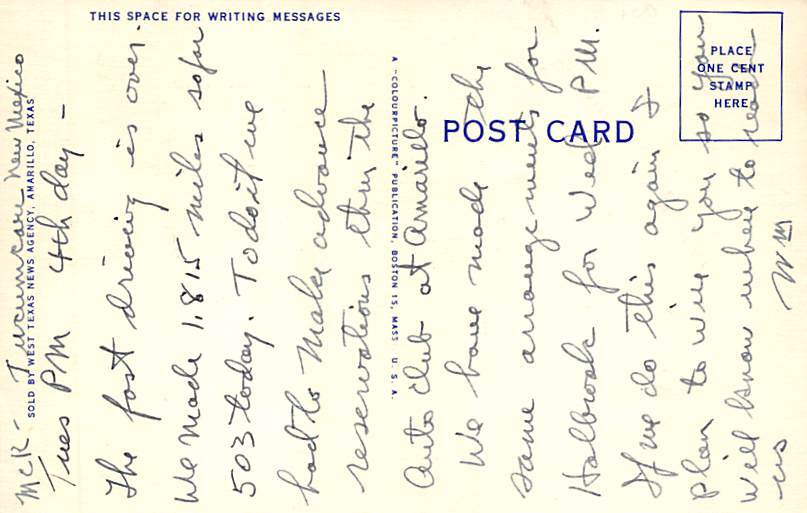 THIS SPACE FOR WRITING MESSAGES
POST CARD
PLACE
ONE CENT
STAMP
HERE
SOLD BY WEST TEXAS NEWS AGENCY, AMARILLO, TEXAS
A "COLOURPICTURE" PUBLICATION, BOSTON 15, MASS U. S. A.
McK - Tucumcari New Mexico
Tues PM 4th day -
The fast driving is over.
We made 1815 miles so far
503 today. To do it we
had to make advance
reservations thru the
Auto Club at Amarillo.
We have made the
same arrangements for
Holbrook for Wed PM.
If we do this again I
plan to wire you so you
will know where to reach
us WM